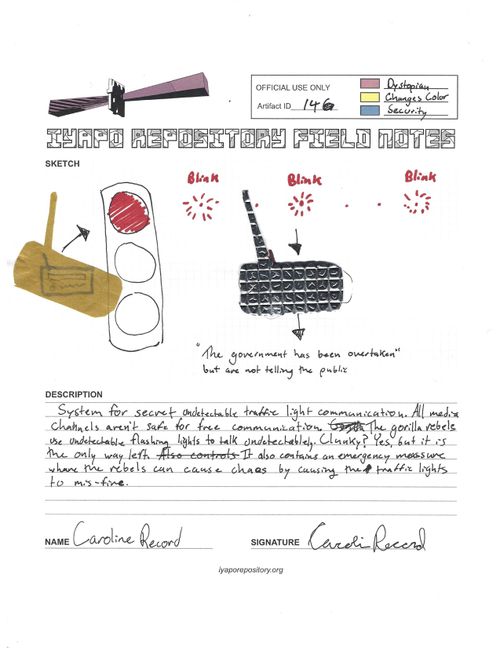 OFFICIAL USE ONLY
Artifact ID 146
Dystopian
Changes Color
Security
IYAPO REPOSITORY FIELD NOTES
SKETCH
Blink
Blink
Blink
"The government has been overtaken"
but are not telling the public
DESCRIPTION
System for secret undetectable traffic light communication. All media
channels aren't safe for free communication. The gorilla rebels
use undetectable flashing lights to talk undectectablely. Clunky? Yes, but it is
the only way left Also controls It also contains an emergency measure
where the rebels can cause chaos by causing the traffic lights
to mis-fire.
NAME Caroline Record
SIGNATURE Caroli Record
iyaporepository.org